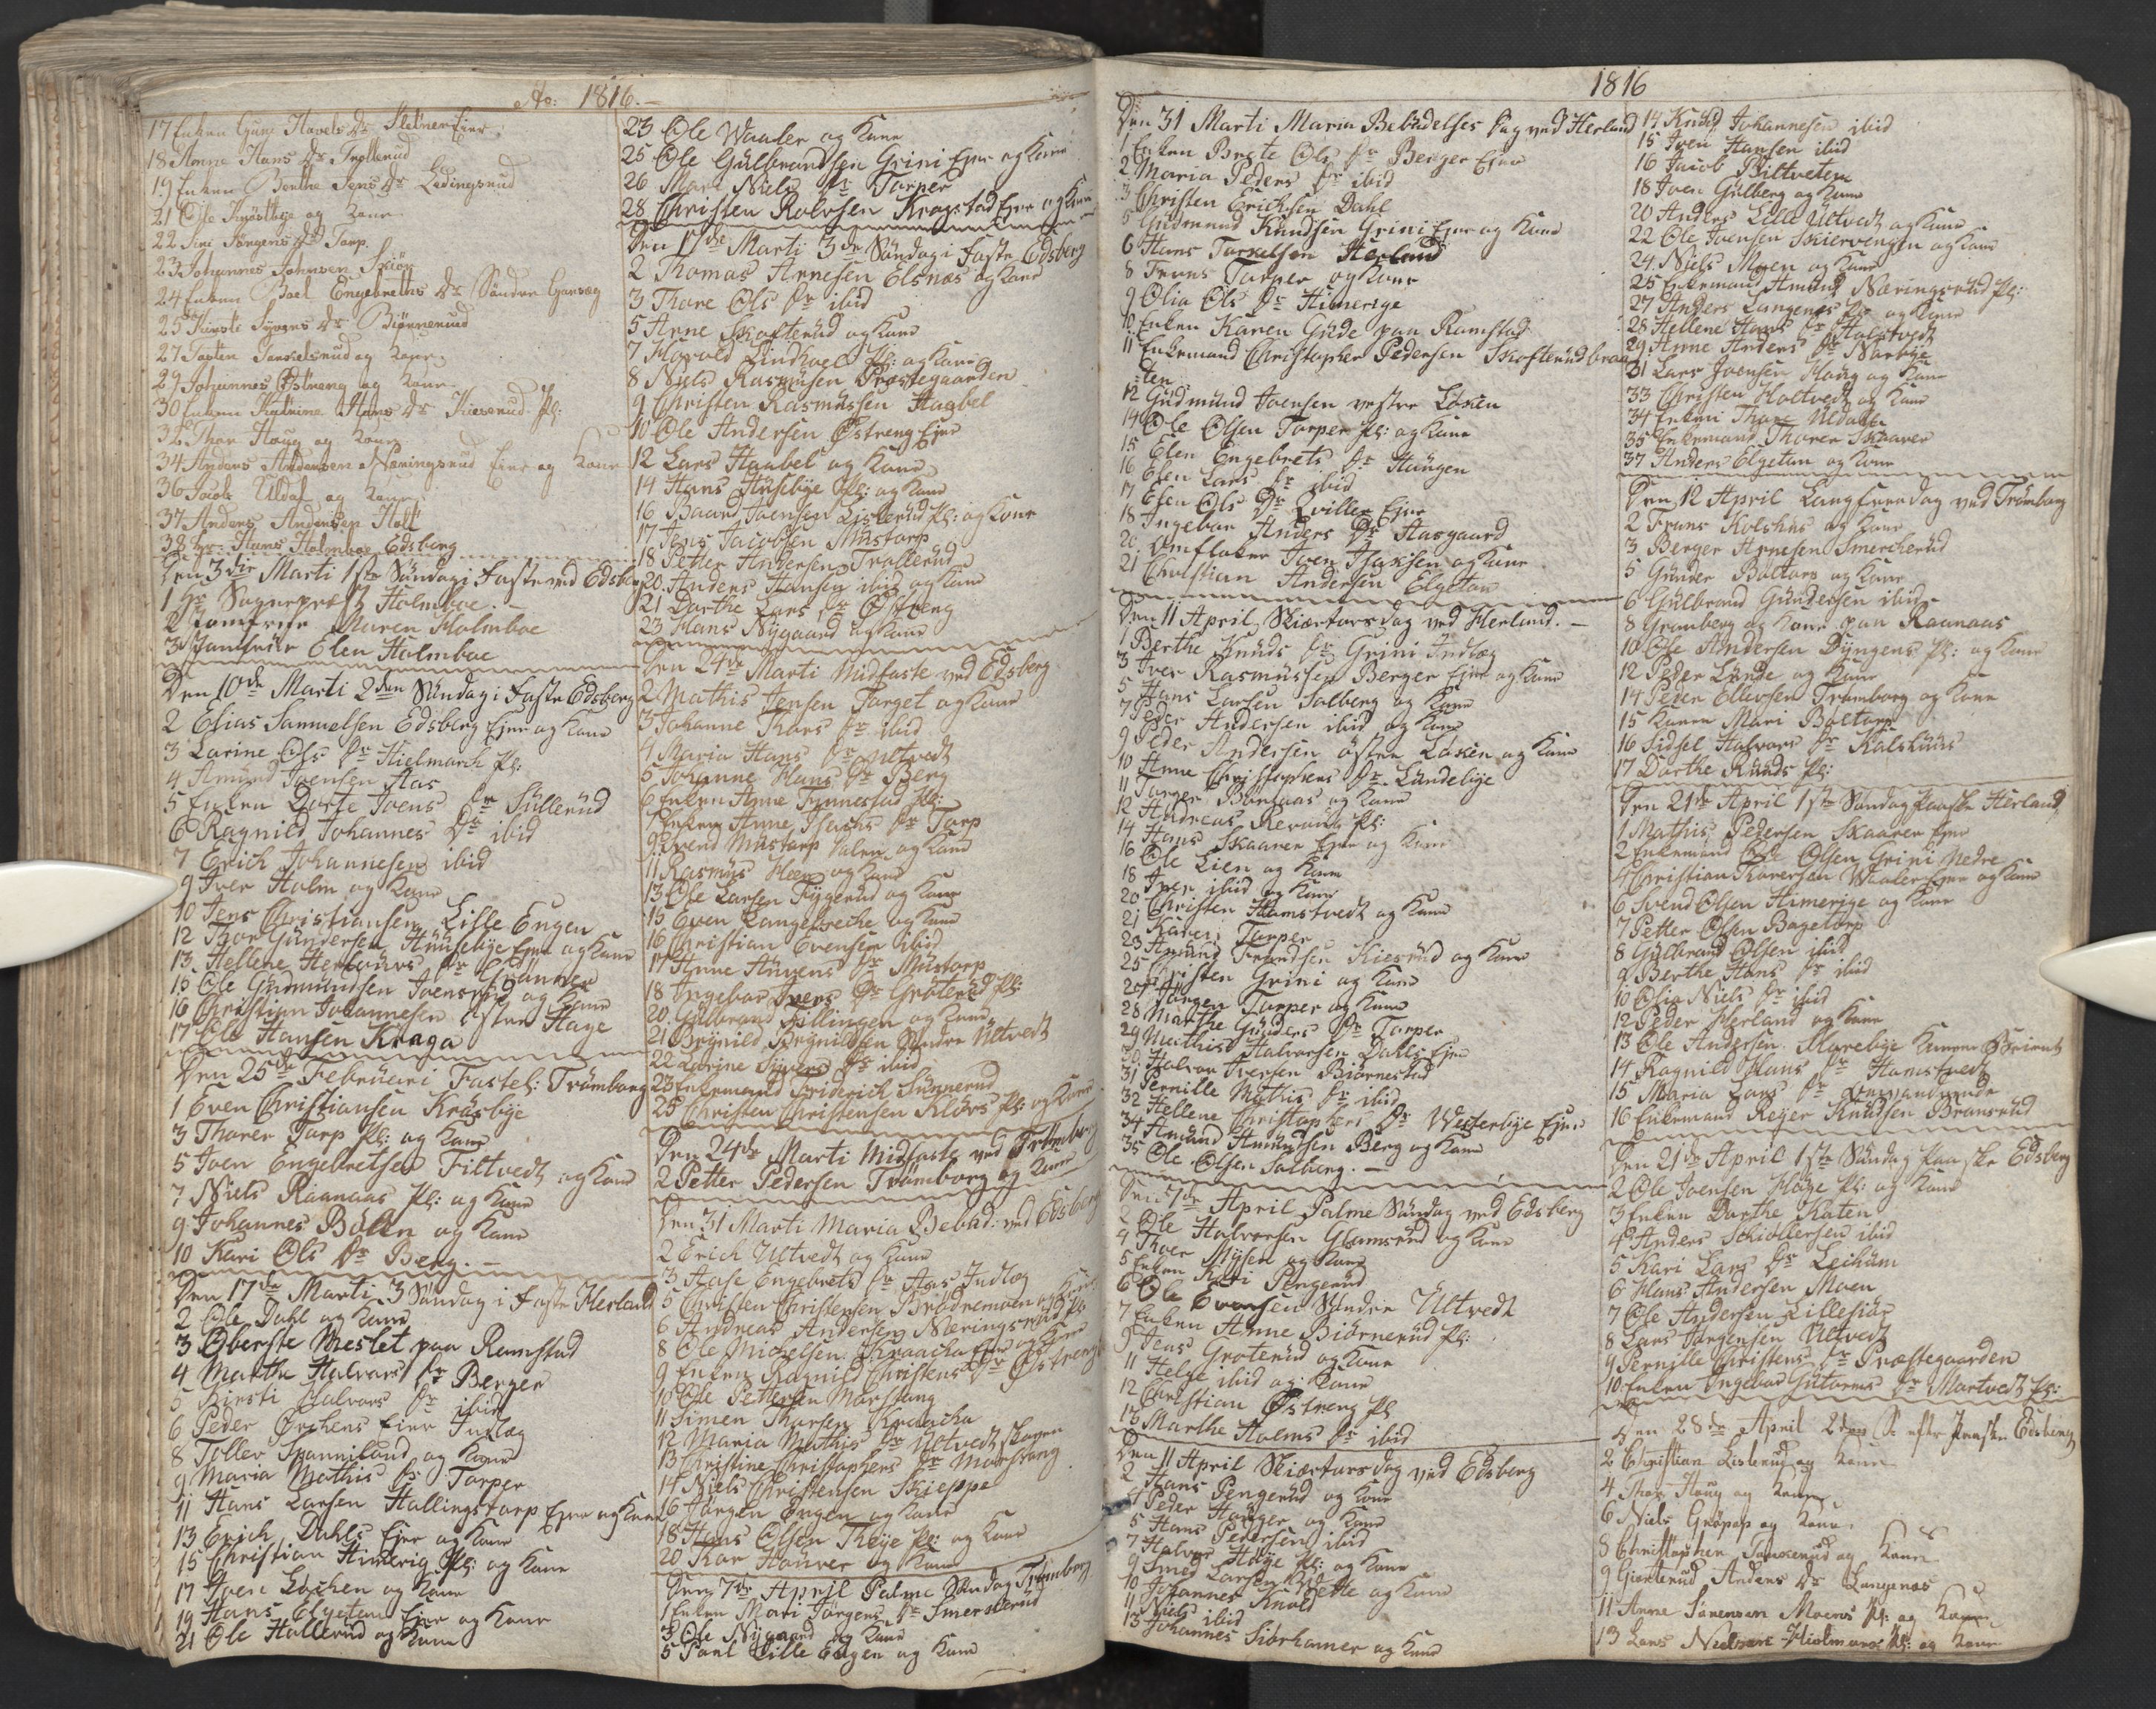 Ao: 1816.
17 Enken Gunil Havels Dr Sletner Ejer
18 Anne Hans Dr Trollerud
19 Enken Berthe Jens Dr Lidingsrud
21 Ole Knøstbye og Kone
22 Siri Jørgens Dr Torp
23 Johannes Johnsen Skiør
24 Enken Boel Engebrets Dr Søndre
25 Dr Biørnerud
27 og Kone
29 Johannes Østreng og Kone
30 Enken Katrine Hans Dr Kieserud Pl:
32 Thor Houg og Kone
34 Anders Andersen Næringsrud Ejer og Kone
36 Jacob Uldal og Kone
37 Anders Andersen Holt
38 Hr: Hans Holmboe Edsberg
Den 3die Marti 1ste Søndag i Faste ved Edsberg
1 Hr Sogneprest Holmboe
2 Jomfrue Maren Holmboe
3 Jomfrue Elen Holmboe
Den 10de Marti 2den Søndag i Faste Edsberg
2 Elias Samuelsen Edsberg Ejer og Kone
3 Larine Ols Dr Hielmark Pl:
4 Amund Joensen Aas
5 Enken Dorte Joens Dr Sullerud
6 Ragnild Johannes Dr ibid
7 Erich Johannesen ibid
9 Iver Holm og Kone
10 Jens Christiansen Lille Engen
12 Thor Gundersen Huusebye Ejer og Kone
13 Hellene Dr
15 Ole Gudmundsen Joensrud og Kone
16 Christian Johannesen østre Hage
17 Ole Hansen Kraga
Den 25de Februari Fastel: Trømborg
1 Even Christiansen Kraasbye
3 Thorer Torp Pl: og Kone
5 Joen Engebretsen Filtvedt og Kone
7 Niels Raanaas Pl: og Kone
9 Johannes Bøllen og Kone
10 Kari Ols Dr Berg.
Den 17de Marti 3 Søndag i Faste Herland
2 Ole Dahl og Kone
3 Øberste Meslet paa Ramstad
4 Marthe Halvors Dr Berger
5 Kiersti Halvors Dr ibid
6 Peder Ørckens Ejer Indlæg
8 Toller Spannilund og Kone
9 Maria Mathis Dr Torper
11 Hans Larsen Hallingstorp Ejer og Kone
13 Erich Dahls Ejer og Kone
15 Christian Himerig Pl: og Kone
17 Joen Løchen og Kone
19 Hans Elgetun Ejer og Kone
21 Ole Hallerud og Kone
23 Ole Waaler og Kone
25 Ole Gulbrandsen Grini Ejer og Kone
26 Mari Niels Dr Torper
28 Christen Rolvsen Kragstad Ejer og Kone
Den 17de Marti 3de Søndag i Faste Edsberg
2 Thomas Arnesen Elsnæs og Kone
3 Thore Ols Dr ibid
5 Arne Skofterud og Kone
7 Harald Lindhoel Pl: og Kone
8 Niels Rasmusen Præstegaarden
9 Christen Rasmussen Haabel
10 Ole Andersen Østreng Ejer
12 Lars Haabel og Kone
14 Hans Husebye Pl: og Kone
16 Baard Joensen Listerud Pl: og Kone
17 Jens Jacobsen Mustorp
18 Petter Andersen Trollerud
20 Anders Hansen ibid og Kone
21 Dorthe Lars Dr Østreng
23 Hans Nygaard og Kone
Den 24de Marti Midfaste ved Edsberg
2 Mathis Jensen Farget og Kone
3 Johanne Thors Dr ibid
4 Maria Hans Dr Ultvedt
5 Johanne Hans Dr Berg
6 Enken Anne Finnestad Pl:
7 Enken Anne Isachs Dr Torp
9 Svend Mustorp og Kone
11 Rasmus Heen og Kone
13 Ole Larsen Tygerud og Kone
15 Even Langebreche og Kone
16 Christian Evensen ibid
17 Anne Aavens Dr Mustorp
18 Ingebor Ivers Dr Groterud Pl:
20 Gulbrand Fillingen og Kone
21 Brynild Brynildsen Søndre Ultvedt
22 Larine Syvers Dr ibid
23 Enkemand Friderich Slupnerud
25 Christen Christensen Kløvs Pl: og Kone
Den 24de Marti Midfaste ved Trømborg
2 Petter Pedersen Trømborg og Kone
Den 31 Marti Maria Bebud: ved Edsberg
2 Erich Ultvedt og Kone
3 Aase Engebrets Dr Aas Indlæg
5 Christen Christensen Brødremoen og Kone
6 Andreas Andersen Næringsrud Pl
8 Ole Michelsen Kraacha Ejer og Kone
9 Enken Ragnild Christens Dr Østreng
10 Ole Pettersen Morstong
11 Simen Thorsen Kraacha
12 Maria Mathis Dr Ultvedt Skoven
13 Christine Christophers Dr Morstong
14 Niels Christensen Skieppe
16 Jørgen Engen og Kone
18 Hans Olsen Theye Pl: og Kone
20 Kor Haaver og Kone
Den 7de April Palme Søndag Trømborg
1 Enken Mari Jørgens Dr Smerckerud
3 Ole Nygaard og Kone
5 Poul Lille Engen og Kone
1816
Den 31 Marti Maria Bebudelses Dag ved Herland
1 Enken Brete Ols Dr Berger Ejer
2 Maria Peders Dr ibid
3 Christen Erichsen Dahl
5 Gudmund Knudsen Grini Ejer og Kone
6 Hans Torkelsen Herland
8 Frans Torper og Kone
9 Olia Ols Dr Himerige
10 Enken Karen Gude paa Ramstad
11 Enkemand Christopher Pedersen Skofterudbraa
ten
12 Gudmund Joensen vestre Løken
14 Ole Olsen Torper Pl: og Kone
15 Elen Engebrets Dr Haugen
16 Elen Lars Dr ibid
17 Elen Ols Dr Qviller Ejer
18 Ingebor Anders Dr Aasgaard
20 Joen Isaksen og Kone
21 Christian Andersen Elgetun
Den 11 April Skiærtorsdag ved Herland.
1 Berthe Knuds Dr Grini Indlæg
3 Iver Rasmussen Berger Ejer og Kone
5 Hans Larsen Solberg og Kone
7 Peder Andersen ibid og Kone
9 Peder Andersen østre Løken og Kone
10 Anne Christophers Dr Lundebye
11 Torger Bønaas og Kone
12 Andreas Revaug Pl:
14 Hans Skaaren Ejer og Kone
16 Ole Lien og Kone
18 Iver ibid og Kone
20 Christen Hamstvedt og Kone
21 Karen Torper
23 Amund Frandsen Kiesrud og Kone
25 Christen Grini og Kone
27 Jørgen Torper og Kone
28 Marthe Gunders Dr Torper
29 Mathis Halvorsen Dahls Ejer
30 Halvor Iversen Biørnestad
31 Pernille Mathis Dr ibid
32 Hellene Christophers Dr Westerbye Ejer
34 Amund Amundsen Berg og Kone
35 Ole Olsen Solberg.
Den 7de April Palme Søndag ved Edsberg
2 Ole Halvorsen Glamsrud og Kone
4 Thor Mysen og Kone
5 Enken Kari Pengerud
6 Ole Evensen Søndre Ultvedt
7 Enken Anne Biørnerud Pl:
9 Jens Groterud og Kone
11 Helge ibid og Kone
12 Christian Østreng Pl
13 Marthe Holms Dr ibid
Den 11 April Skiærtorsdag ved Edsberg
2 Hans Pengerud og Kone
4 Peder Hauger og Kone
5 Hans Pedersen ibid
7 Halvor Høye Pl: og Kone
9 Smed Larsen og Kone
10 Johannes Knold
11 Niels ibid
13 Johannes Siørhamer og Kone
14 Knud Johannesen ibid
15 Joen Hansen ibid
16 Jacob Biltveten
18 Joen Gulberg og Kone
20 Anders Lille Ultvedt og Kone
22 Ole Joensen Skiervengen og Kone
24 Niels Moen og Kone
25 Enkemand Amund Næringsrud Pl:
27 Anders Langenæs Pl: og Kone
28 Hellene Hans Dr Holstvedt
29 Anne Anders Dr Narbye
31 Lars Joensen Houg og Kone
33 Christen Holtvedt og Kone
34 Enken Thore Uldalen
35 Enkemand Thorer Skaaren
37 Anders Elgetun og Kone
Den 12 April Langfreedag ved Trømborg
2 Frans Kolshus og Kone
3 Berger Arnesen Smerckerud
5 Gunder Boltorp og Kone
6 Gulbrand Gundersen ibid
8 Gramberg og Kone paa Raanaas
10 Ole Andersen Dyngens Pl: og Kone
12 Peder Lunde og Kone
14 Peder Ellevsen Trømborg og Kone
15 Konen Mari Boltorp
16 Sidsel Halvors Dr Kalshuus
17 Dorthe Ruuds Pl:
Den 21de April 1ste Søndag Paaske Herland
1 Mathis Pedersen Skaaren Ejer
2 Enkemand Ole Olsen Grini Nedre
4 Christian Torersen Waaler Ejer og Kone
6 Svend Olsen Himerige og Kone
7 Petter Olsen Bøgetorp
8 Gulbrand Olsen ibid
9 Berthe Hans Dr ibid
10 Olia Niels Dr ibid
12 Peder Herland og Kone
13 Ole Andersen
14 Ragnild Hans Dr Hamstvedt
15 Maria Lars Dr
16 Enkemand Rejer Knudsen Bransrud
Den 21de April 1ste Søndag Paaske Edsberg
2 Ole Joensen Høye Pl: og Kone
3 Enken Dorthe Katen
4 Anders Schiollersen ibid
5 Kari Lars Dr Leikum
6 Hans Andersen Moen
7 Ole Andersen Lillesiør
8 Lars Jørgensen Ultvedt
9 Pernille Christens Dr Præstegaarden
10 Enken Ingebor Gutorms Dr Martvedt Pl:
Den 28de April 2den S. efter Paaske Edsberg
2 Christian Listerud og Kone
4 Thor Houg og Kone
6 Niels og Kone
8 Christopher og Kone
9 Anders Dr Langenæs
11 Arne Sørensen Moens Pl: og Kone
13 Lars Nielsen Hielmark Pl: og Kone